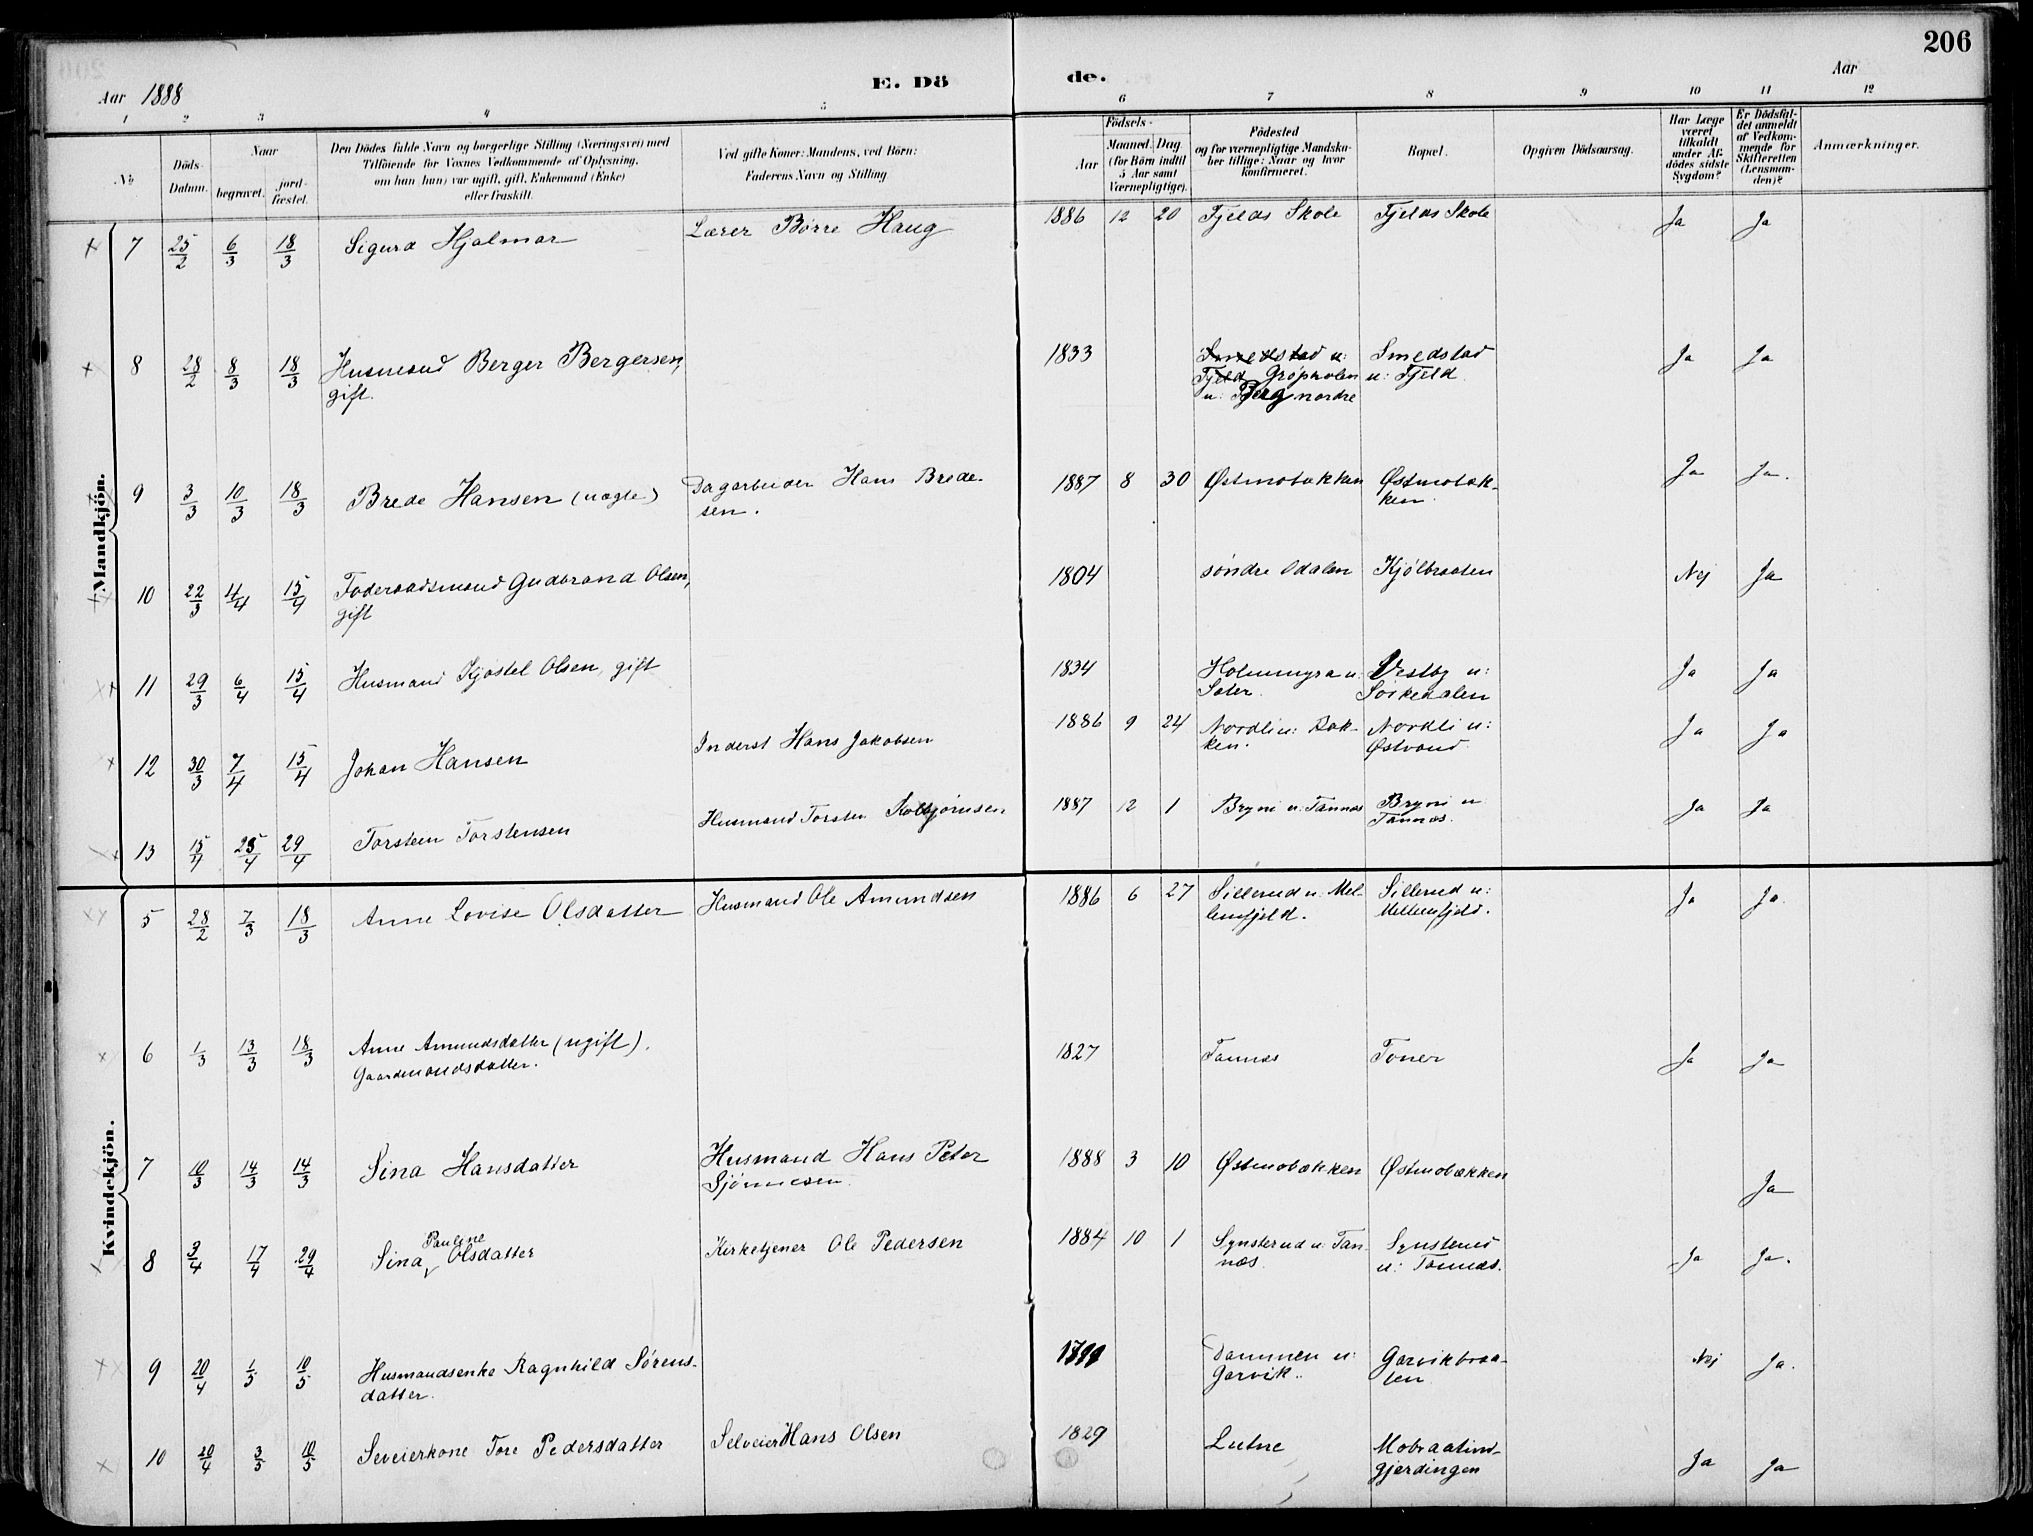 206
Aar 1888 E. Dö de. Aar
1 2 3 4 5 6 7 8 9 10 11 12
No
Döds-Datum.
Naar
begravet.
jord-fæstet.
Den Dödes fulde Navn og borgerlige Stilling (Næringsvei) med
Tilföiende for Voxnes Vedkommende af Oplysning,
om han (hun) var ugift, gift, Enkemand (Enke)
eller fraskilt.
Ved gifte Koner: Mandens, ved Börn:
Faderens Navn og Stilling.
Födsels-
Aar
Maaned. Dag
(for Börn indtil
5 Aar samt
Værnepligtige).
Födested
og for værnepligtige Mandska-
ber tillige: Naar og hvor
konfirmeret.
Bopæl.
Opgiven Dödsaarsag.
Har Læge
været
tilkaldt
under Af-
dödes sidste
Sygdom?
Er Dödsfal-
det anmeldt
af Vedkom-
mende for
Skifteretten
(Lensman-
den)?
Anmærkninger.
Mandkjön.
7 25/2 6/3 18/3 Sigurd Hjalmar Lærer Børre Haug 1886 12 20 Fjelds Skole Fjelds Skole Ja Ja
8 28/2 8/3 18/3 Husmand Berger Bergersen, 1833 Smedstad u: Smedstad Ja Ja
gift. Fjeld Grøpholen u: Fjeld
u: Berg nordre
9 3/3 10/3 18/3 Brede Hansen (uægte) Dagarbeider Hans Brede- 1887 8 30 Østmobakken Østmobæk- Ja Ja.
sen. ken.
10 22/3 4/4 15/4 Føderaadsmand Gudbrand Olsen, 1804 søndre Odalen Kjølbraaten Nej Ja
gift
11 29/3 6/4 15/4 Husmand Kjøstel Olsen, gift 1834 Holmmyra u: Vestby u: Ja Ja
Sæter. Sørkedalen
12 30/3 7/4 15/4 Johan Hansen Inderst Hans Jakobsen 1886 9 24 Nordli u: Bak- Nordli u: Ja Ja
ken. Østvand.
13 15/4 25/4 29/4 Torsten Torstensen Husmand Torsten Kolbjørnsen 1887 12 1 Bryni u: Tannæs Bryni u: Ja Ja
Tannæs.
Kvindekjön.
5 28/2 7/3 18/3 Anne Lovise Olsdatter Husmand Ole Amundsen 1886 6 27 Sillerud u: Mel- Sillerud u: Ja Ja.
lemfjeld. Mellemfjeld.
6 1/3 13/3 18/3 Anne Amundsdatter (ugift). 1827 Tannæs Toner Ja Ja
Gaardmandsdatter.
7 10/3 14/3 14/3 Sina Hansdatter Husmand Hans Peter 1888 3 10 Østmobækken Østmobækken Ja
8 3/4 17/4 29/4 Sina Pauline Olsdatter Kirketjener Ole Pedersen 1884 10 1 Synsterud u: Tan- Synsterud Ja Ja.
næs. u: Tannæs.
9 20/4 1/5 10/5 Husmandsenke Ragnhild Sørens- 1799 Dammen u: Garvikbraa- Nej Ja.
datter. Garvik. ten
10 20/4 3/5 10/5 Seveierkone Tore Pedersdatter Selveier Hans Olsen 1829 Lutne Mobraatind- Ja Ja
gjerdingen